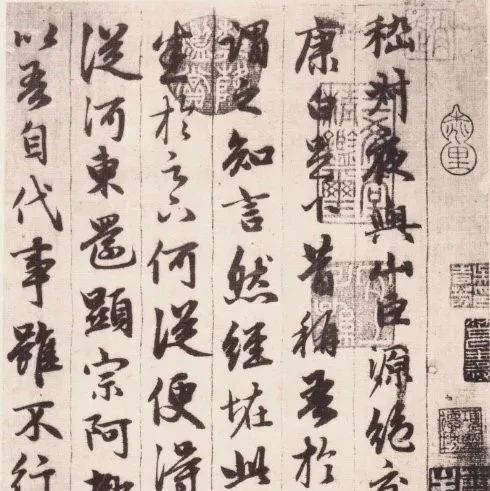 嵇叔夜與山巨源絶交
康白足下昔稱吾於
謂之知言然經恠此
於足下何從便得
從河東還顯宗阿都
以吾自代事雖不行